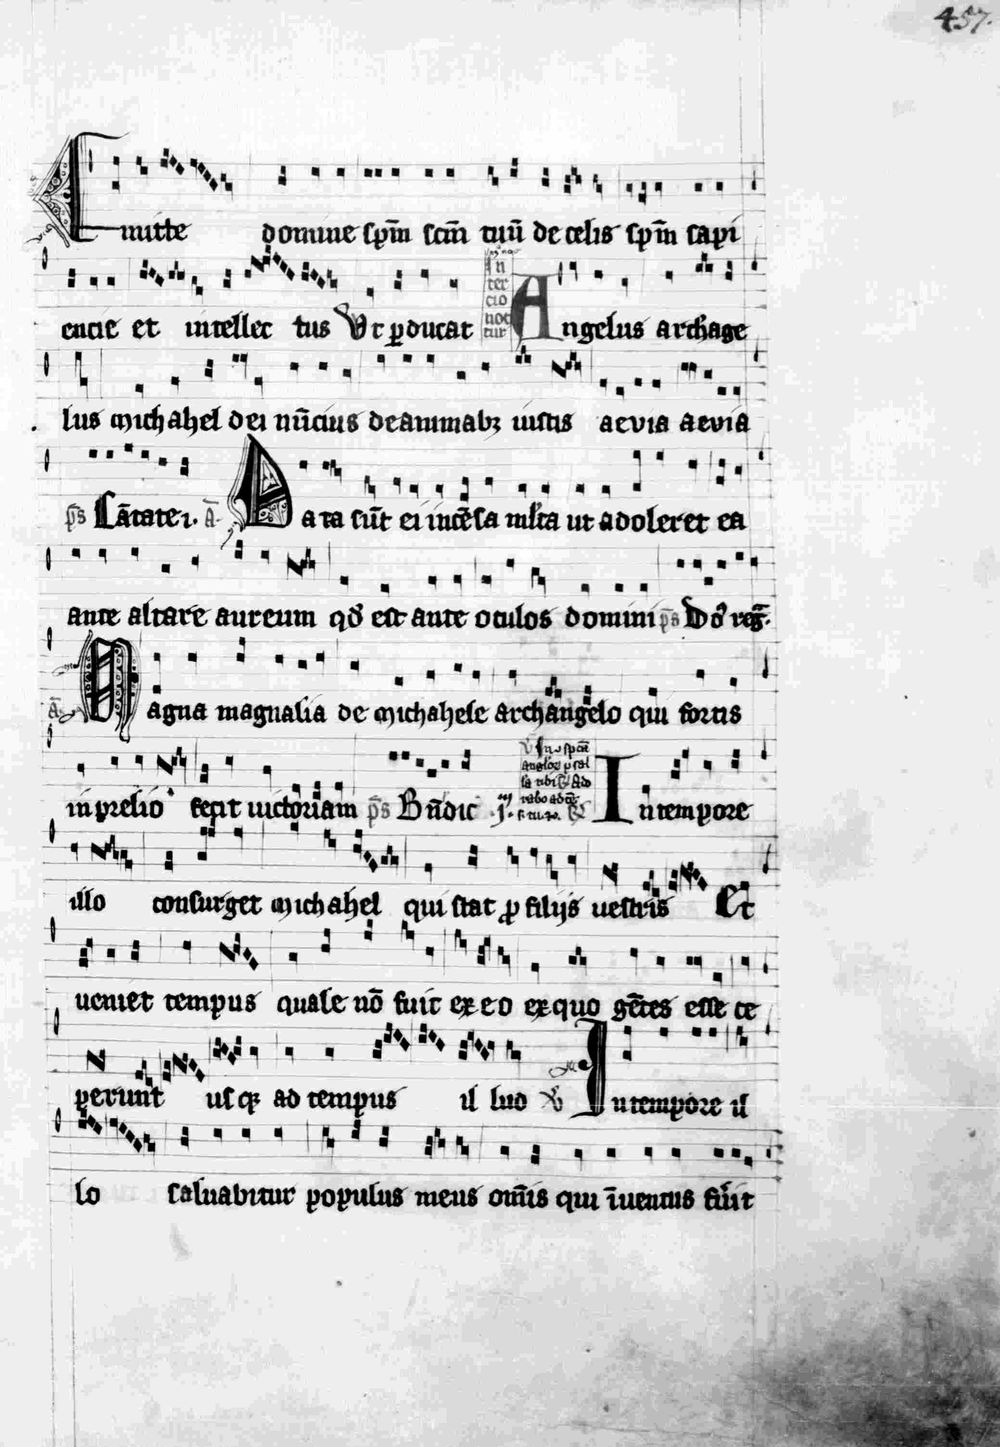 457.
Emitte domine sp̄m sc̄m tuū de celis sp̄m sapi
encie et intellec tus Vt ꝑducat In tercio noctur Angelus archāge
lus michahel dei nūcius de animabꝫ iustis aevia aevia
p̄s Cātate .i. ā Data sūt ei incēsa ml̄ta ut adoleret ea
ante altare aureum qd̓ est ante oculos domini p̄s Dō reḡ.
ā Magna magnalia de michahele archangelo qui fortis
in prelio fecit uictoriam p̄s Bn̄dic In tempore
illo consurget michahel qui stat ꝓ filijs uestris Et
ueniet tempus quale nō fuit ex eo ex quo gētes esse ce
perunt usqꝫ ad tempus il lud ℣ In tempore il
lo saluabitur populus meus om̄is qui īuentus fu̓it